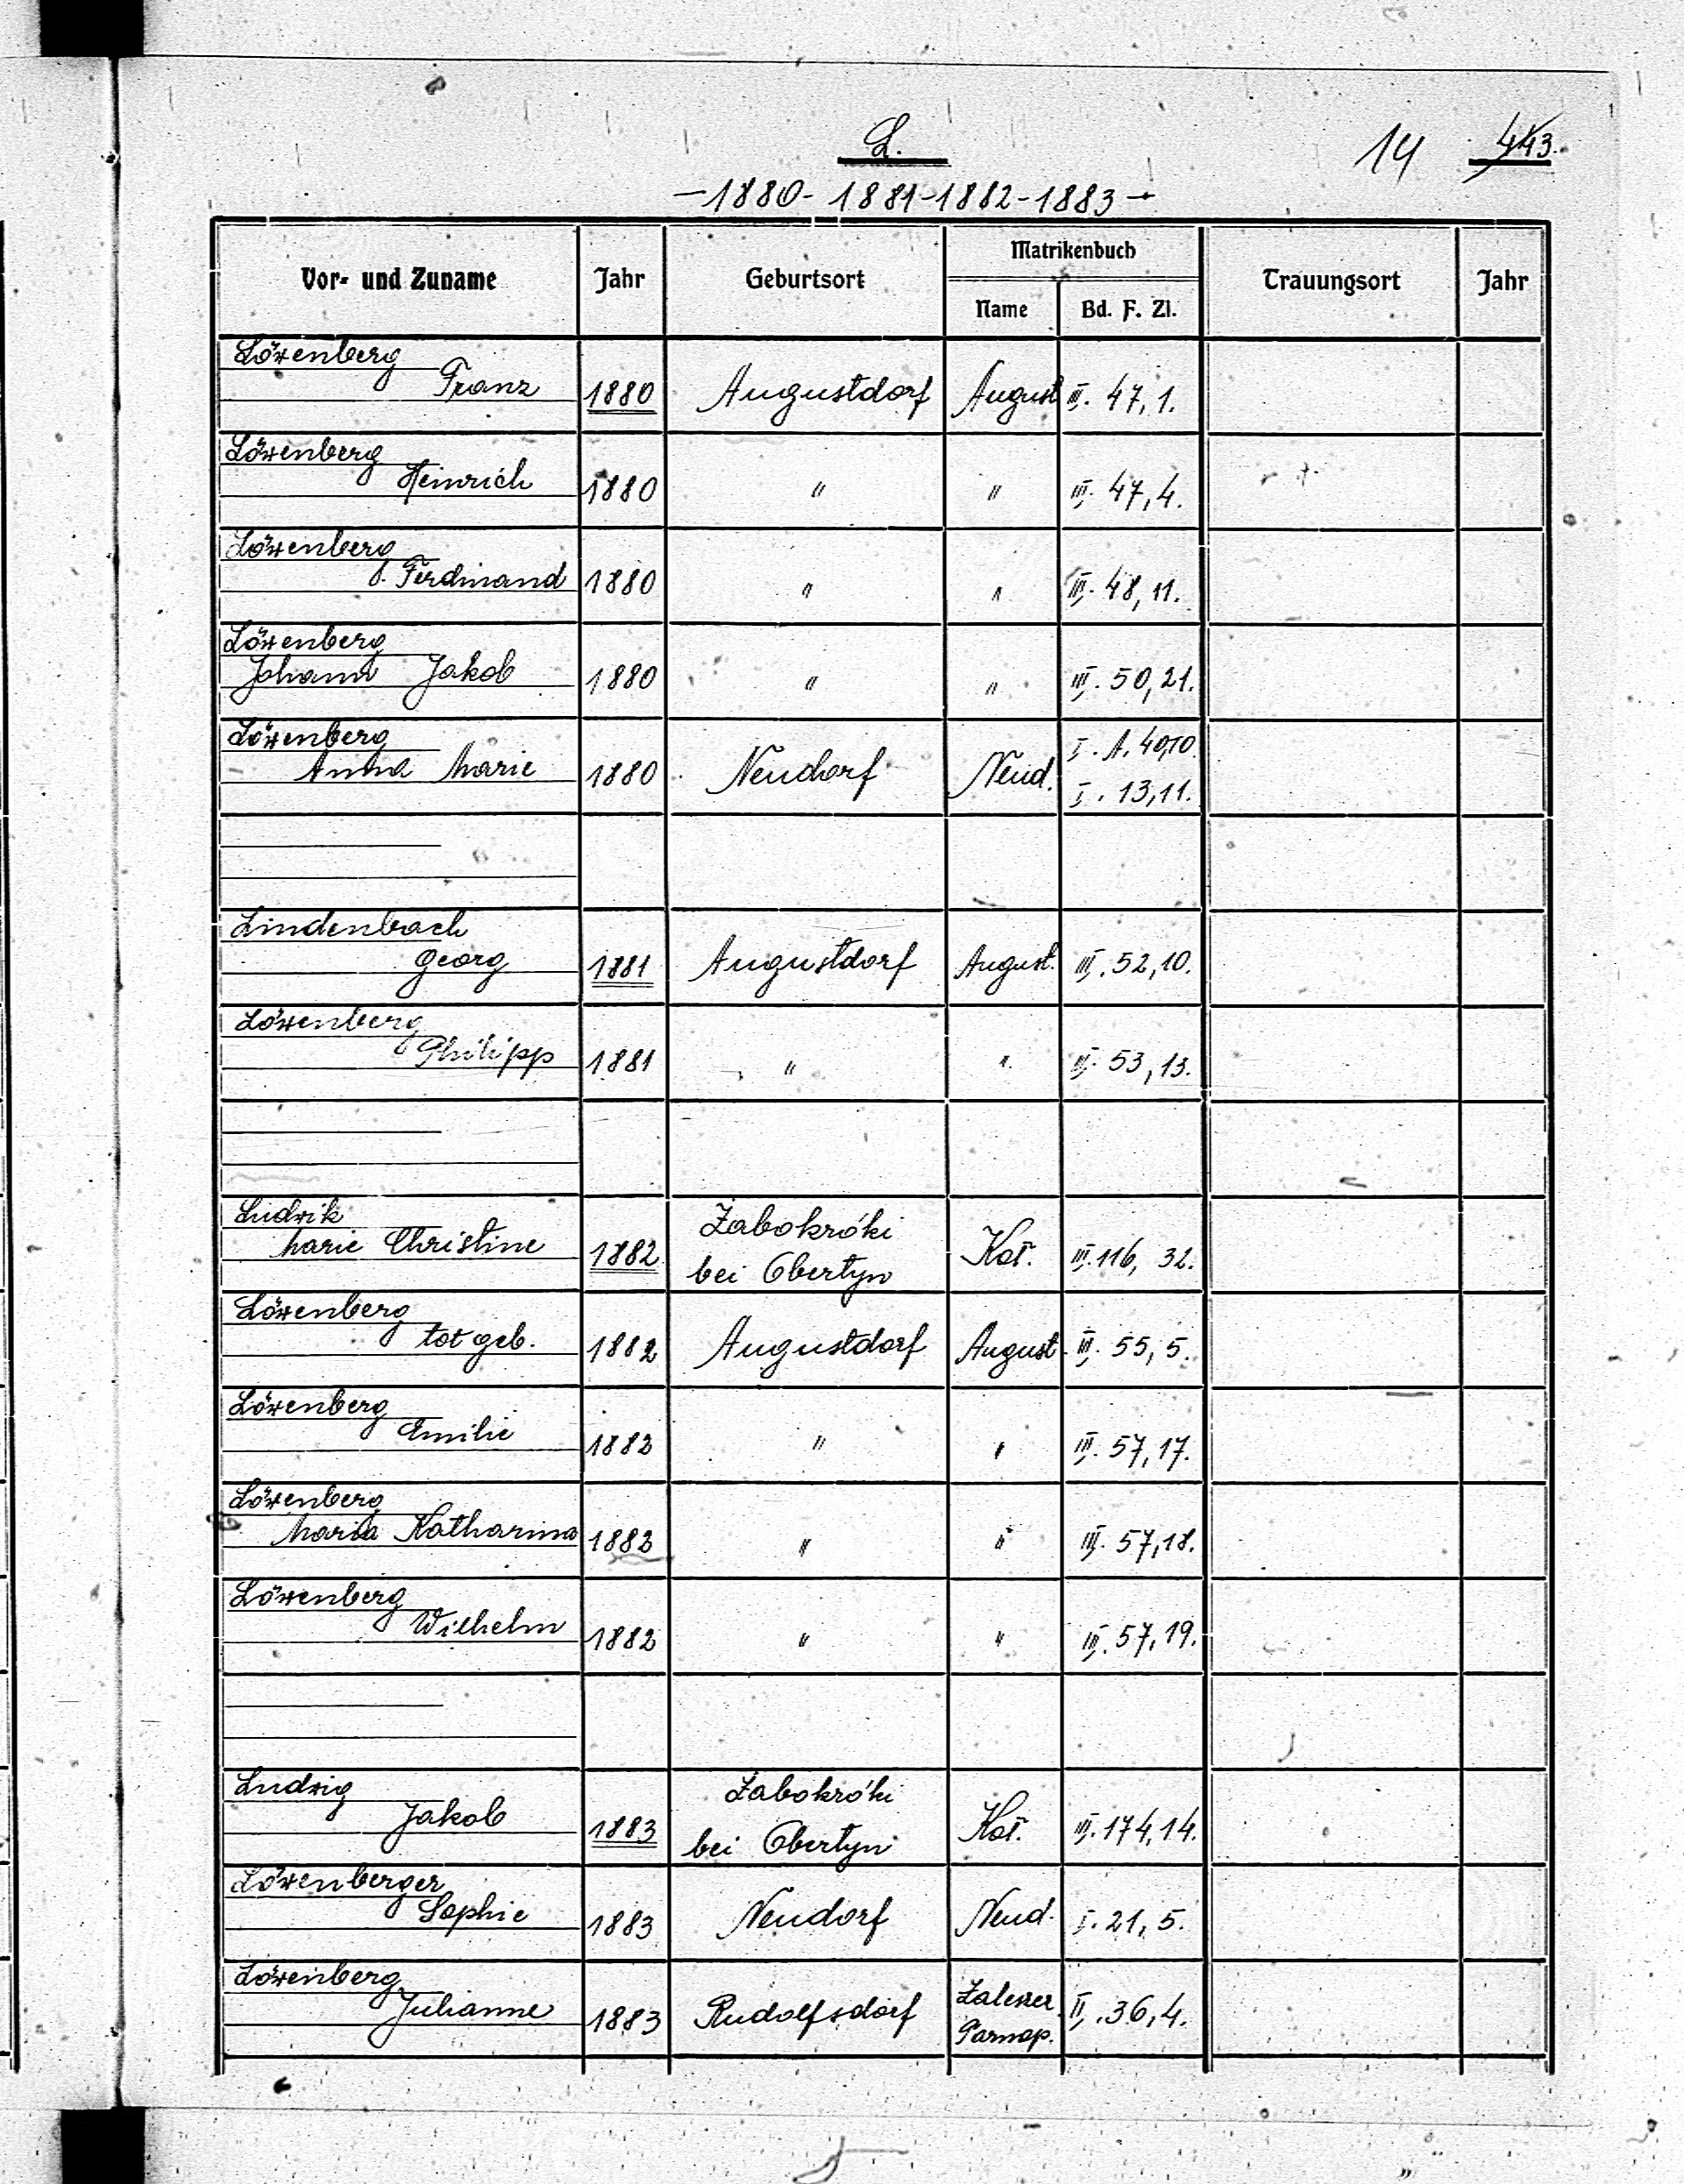 L.
14 443.
-1880-1881-1882-1883-
Vor- und Zuname Jahr Geburtsort Matrikenbuch Trauungsort Jahr
Name Bd. F. Zl.
Löwenberg
Franz 1880 Augustdorf August III. 47, 1.
Löwenberg
Heinrich 1880 " " III. 47, 4.
Löwenberg
Ferdinand 1880 " " III. 48, 11.
Löwenberg
Johann Jakob 1880 " " III. 50, 21.
Löwenberg
Anna Marie 1880 Neudorf Neud. I. A. 40,10.
I. 13, 11.
Lindenbach
Georg 1881 Augustdorf August. III. 52, 10.
Löwenberg
Philipp 1881 " " III. 53, 13.
Ludwik
Marie Christine 1882 Zabokróki
bei Obertyn Kat. III. 116, 32.
Löwenberg
tot geb. 1882 Augustdorf August III. 55, 5.
Löwenberg
Emilie 1882 " " III. 57, 17.
Löwenberg
Maria Katharina 1882 " " III. 57, 18.
Löwenberg
Wilhelm 1882 " " III. 57, 19.
Ludwig
Jakob 1883 Zabokróki
bei Obertyn Kat. III. 174, 14.
Löwenberger
Sophie 1883 Neudorf Neud. I. 21, 5.
Löwenberg
Julianne 1883 Rudolfsdorf II. 36, 4.